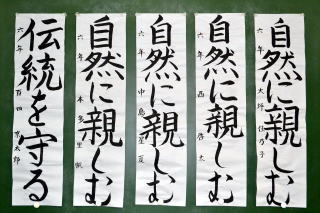 自然に親しむ
六年 大坪 佳乃子
自然に親しむ
六年 西 啓太
自然に親しむ
六年 中島 星夏
自然に親しむ
六年 本多 里帆
伝統を守る
六年 太郎